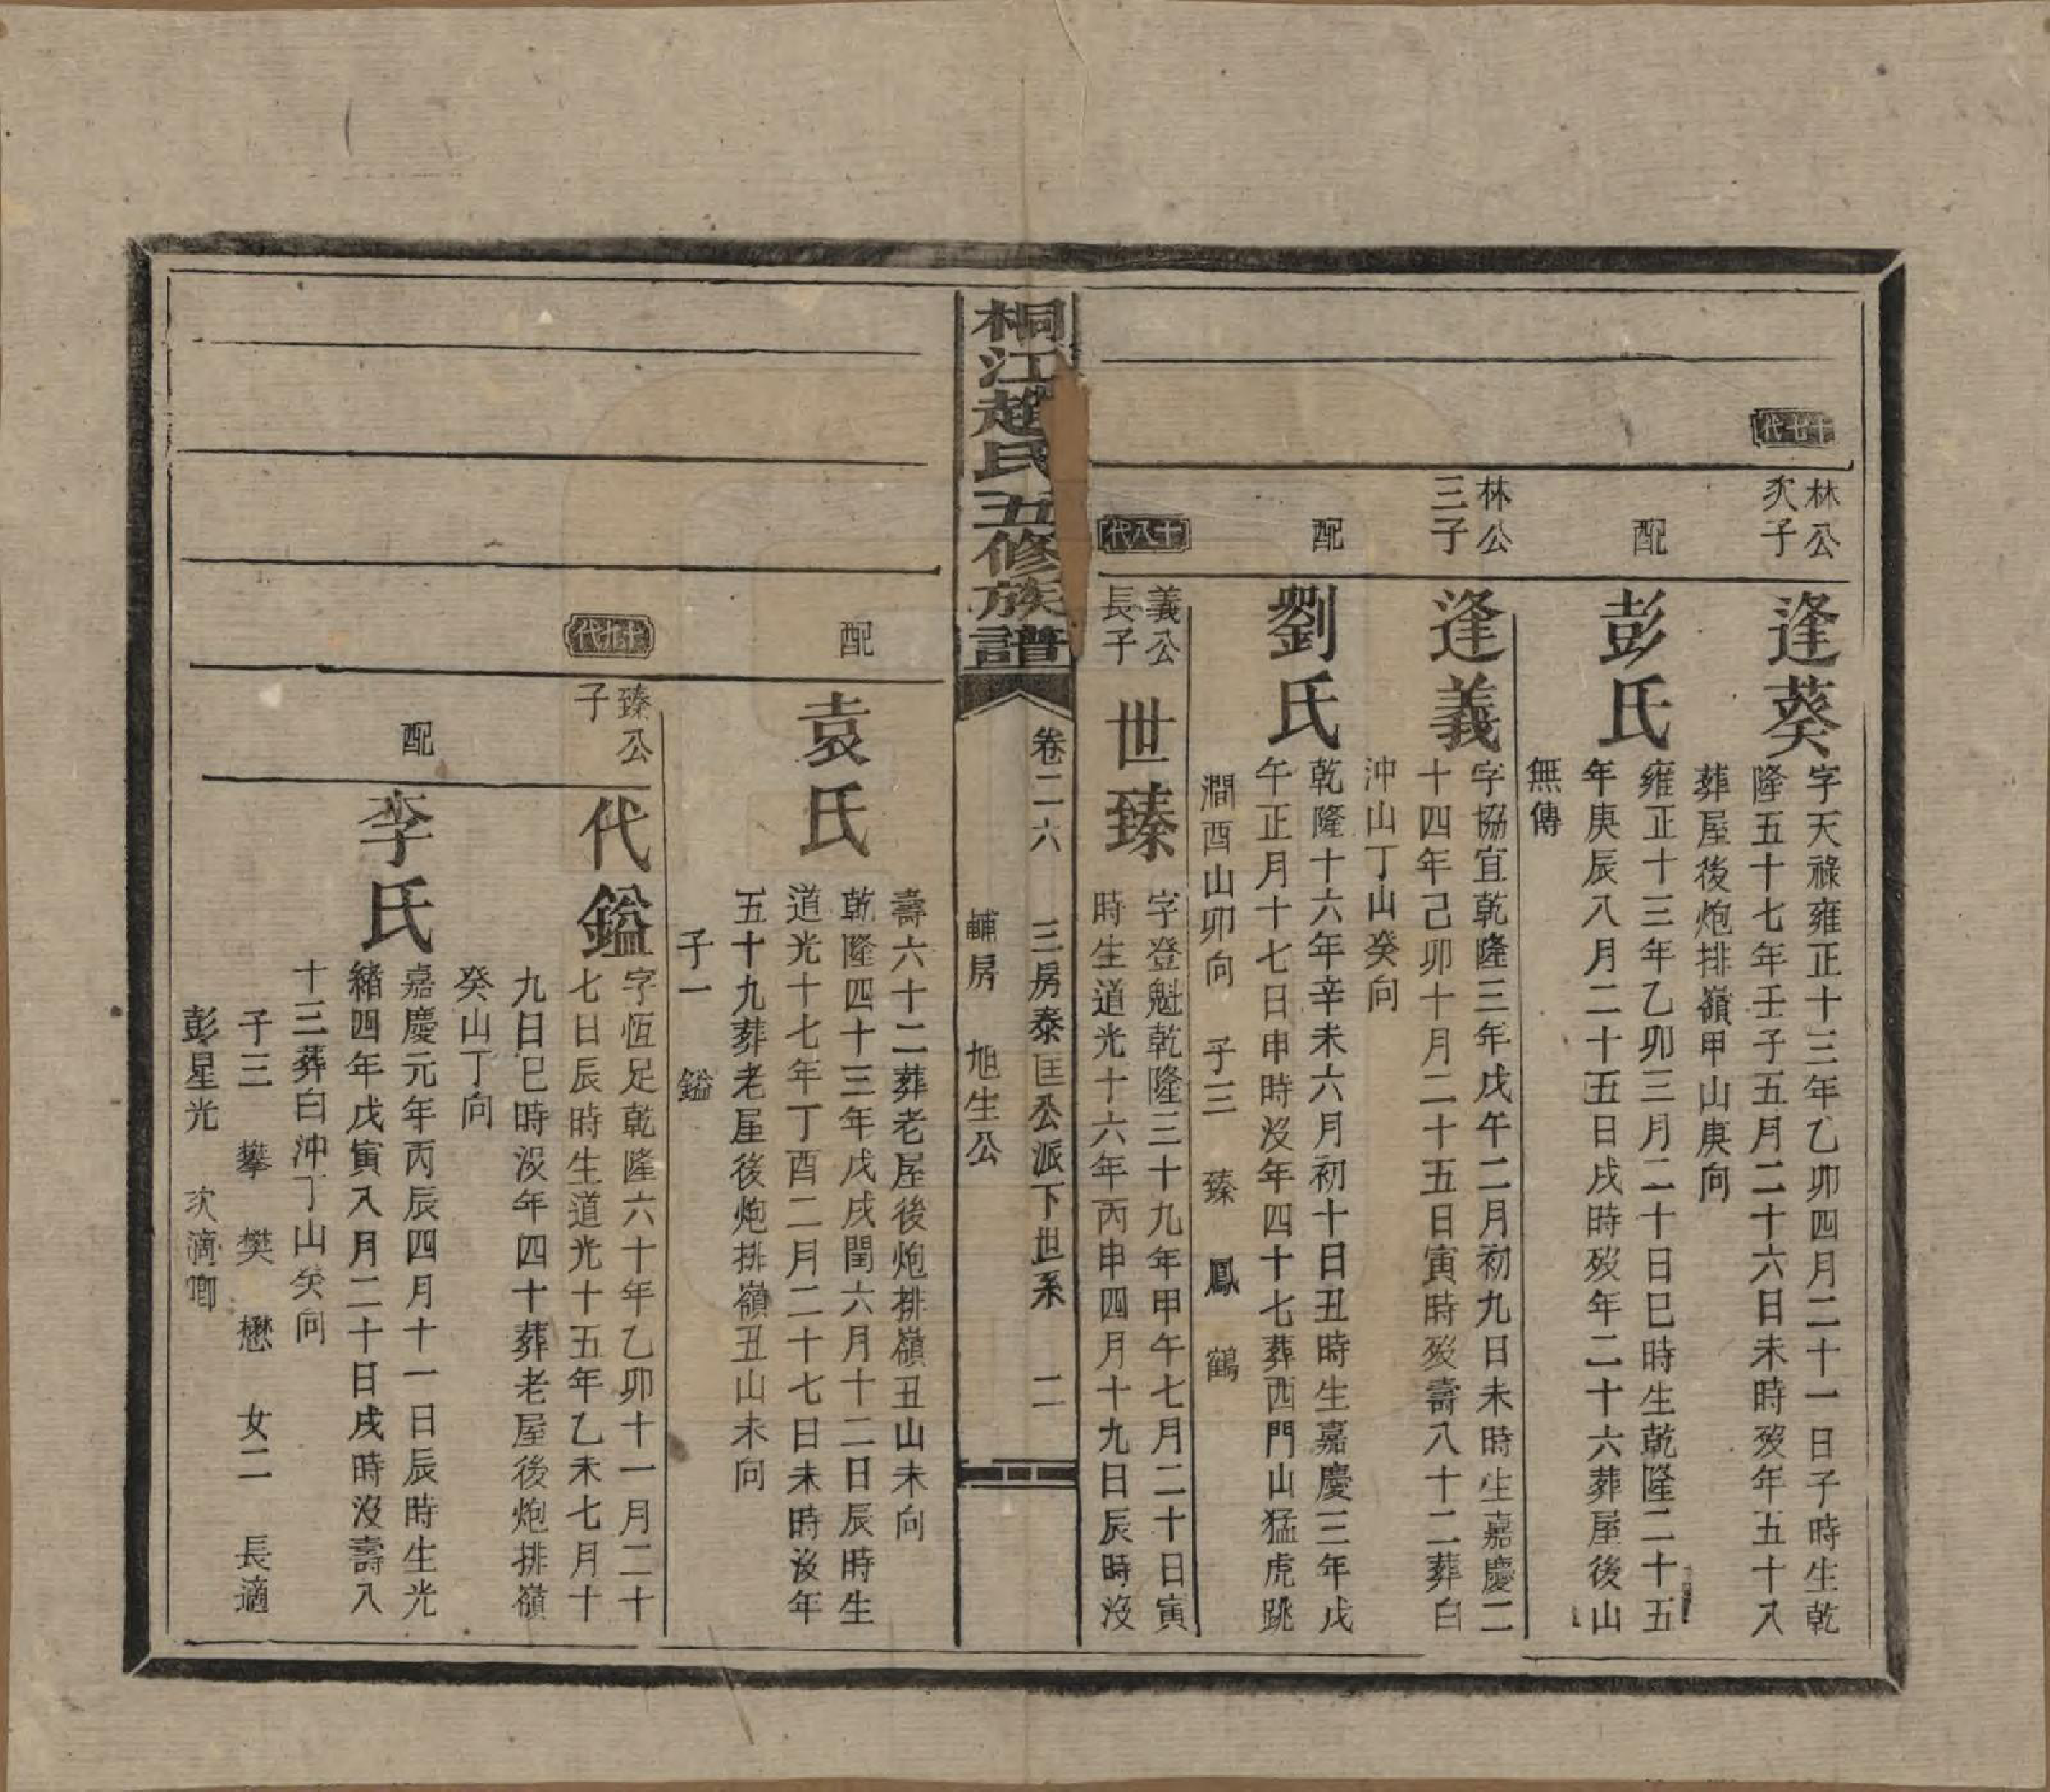 十七代
林公
次子
逢葵
字天祿雍正十三年乙卯四月二十一日子時生乾
隆五十七年壬子五月二十六日未時歿年五十八
葬屋後炮排嶺甲山庚向
配
彭氏
雍正十三年乙卯三月二十日巳時生乾隆二十五
年庚辰八月二十五日戌時歿年二十六葬屋後山
無傳
林公
三子
逢義
字協宜乾隆三年戊午二月初九日未時生嘉慶二
十四年己卯十月二十五日寅時歿壽八十二葬白
沖山丁山癸向
配
劉氏
乾隆十六年辛未六月初十日丑時生嘉慶三年戊
午正月十七日申時沒年四十七葬西門山猛虎跳
澗酉山卯向 子三 臻 鳳 鶴
十八代
義公
長子
世臻
字登魁乾隆三十九年甲午七月二十日寅
時生道光十六年丙申四月十九日辰時沒
桐江趙氏五修族譜
卷二六 三房泰匡公派下世系 二
輔房 旭生公
壽六十二葬老屋後炮排嶺丑山未向
配
袁氏
乾隆四十三年戊戌閏六月十二日辰時生
道光十七年丁酉二月二十七日未時沒年
五十九葬老屋後炮排嶺丑山未向
子一 鎰
十九代
臻公
子
代鎰
字恆足乾隆六十年乙卯十一月二十
七日辰時生道光十五年乙未七月十
九日巳時沒年四十葬老屋後炮排嶺
癸山丁向
配
李氏
嘉慶元年丙辰四月十一日辰時生光
緒四年戊寅八月二十日戌時沒壽八
十三葬白沖丁山癸向
子三 攀 樊 懋 女二 長適
彭星光 次適